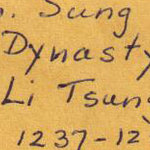 . Sung
Dynasty
Li Tsung
1237-12